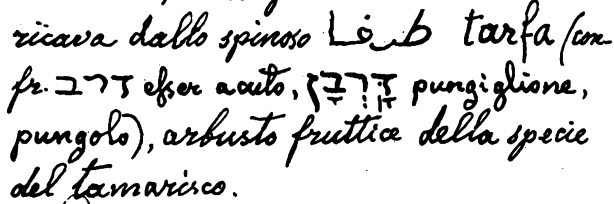 ricava dallo spinoso طرفا tarfa (con-
fr. דרב esser acuto, דָּרְבָן pungiglione,
pungolo), arbusto fruttice della specie
del tamarisco.